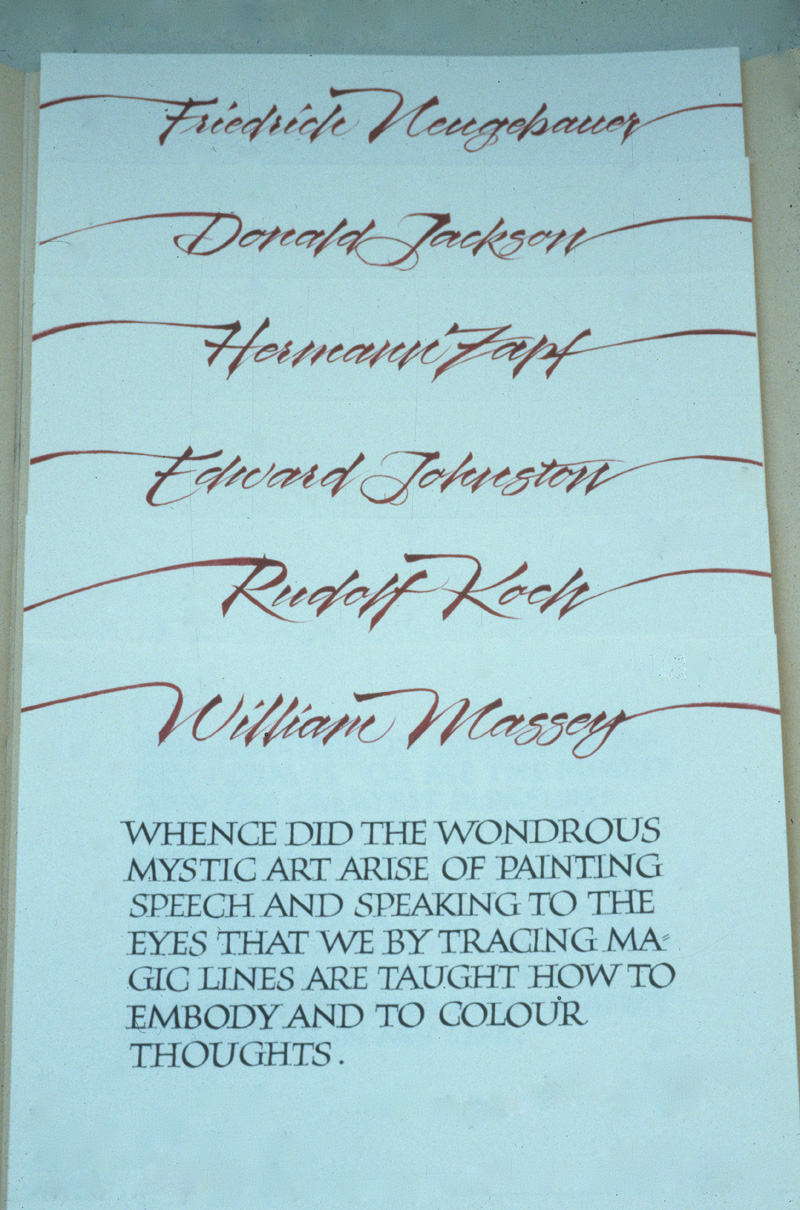 Friedrich Neugebauer
Donald Jackson
Hermann Zapf
Edward Johnston
Rudolf Koch
William Massey
WHENCE DID THE WONDROUS
MYSTIC ART ARISE OF PAINTING
SPEECH AND SPEAKING TO THE
EYES THAT WE BY TRACING MA=
GIC LINES ARE TAUGHT HOW TO
EMBODY AND TO COLOUR
THOUGHTS.